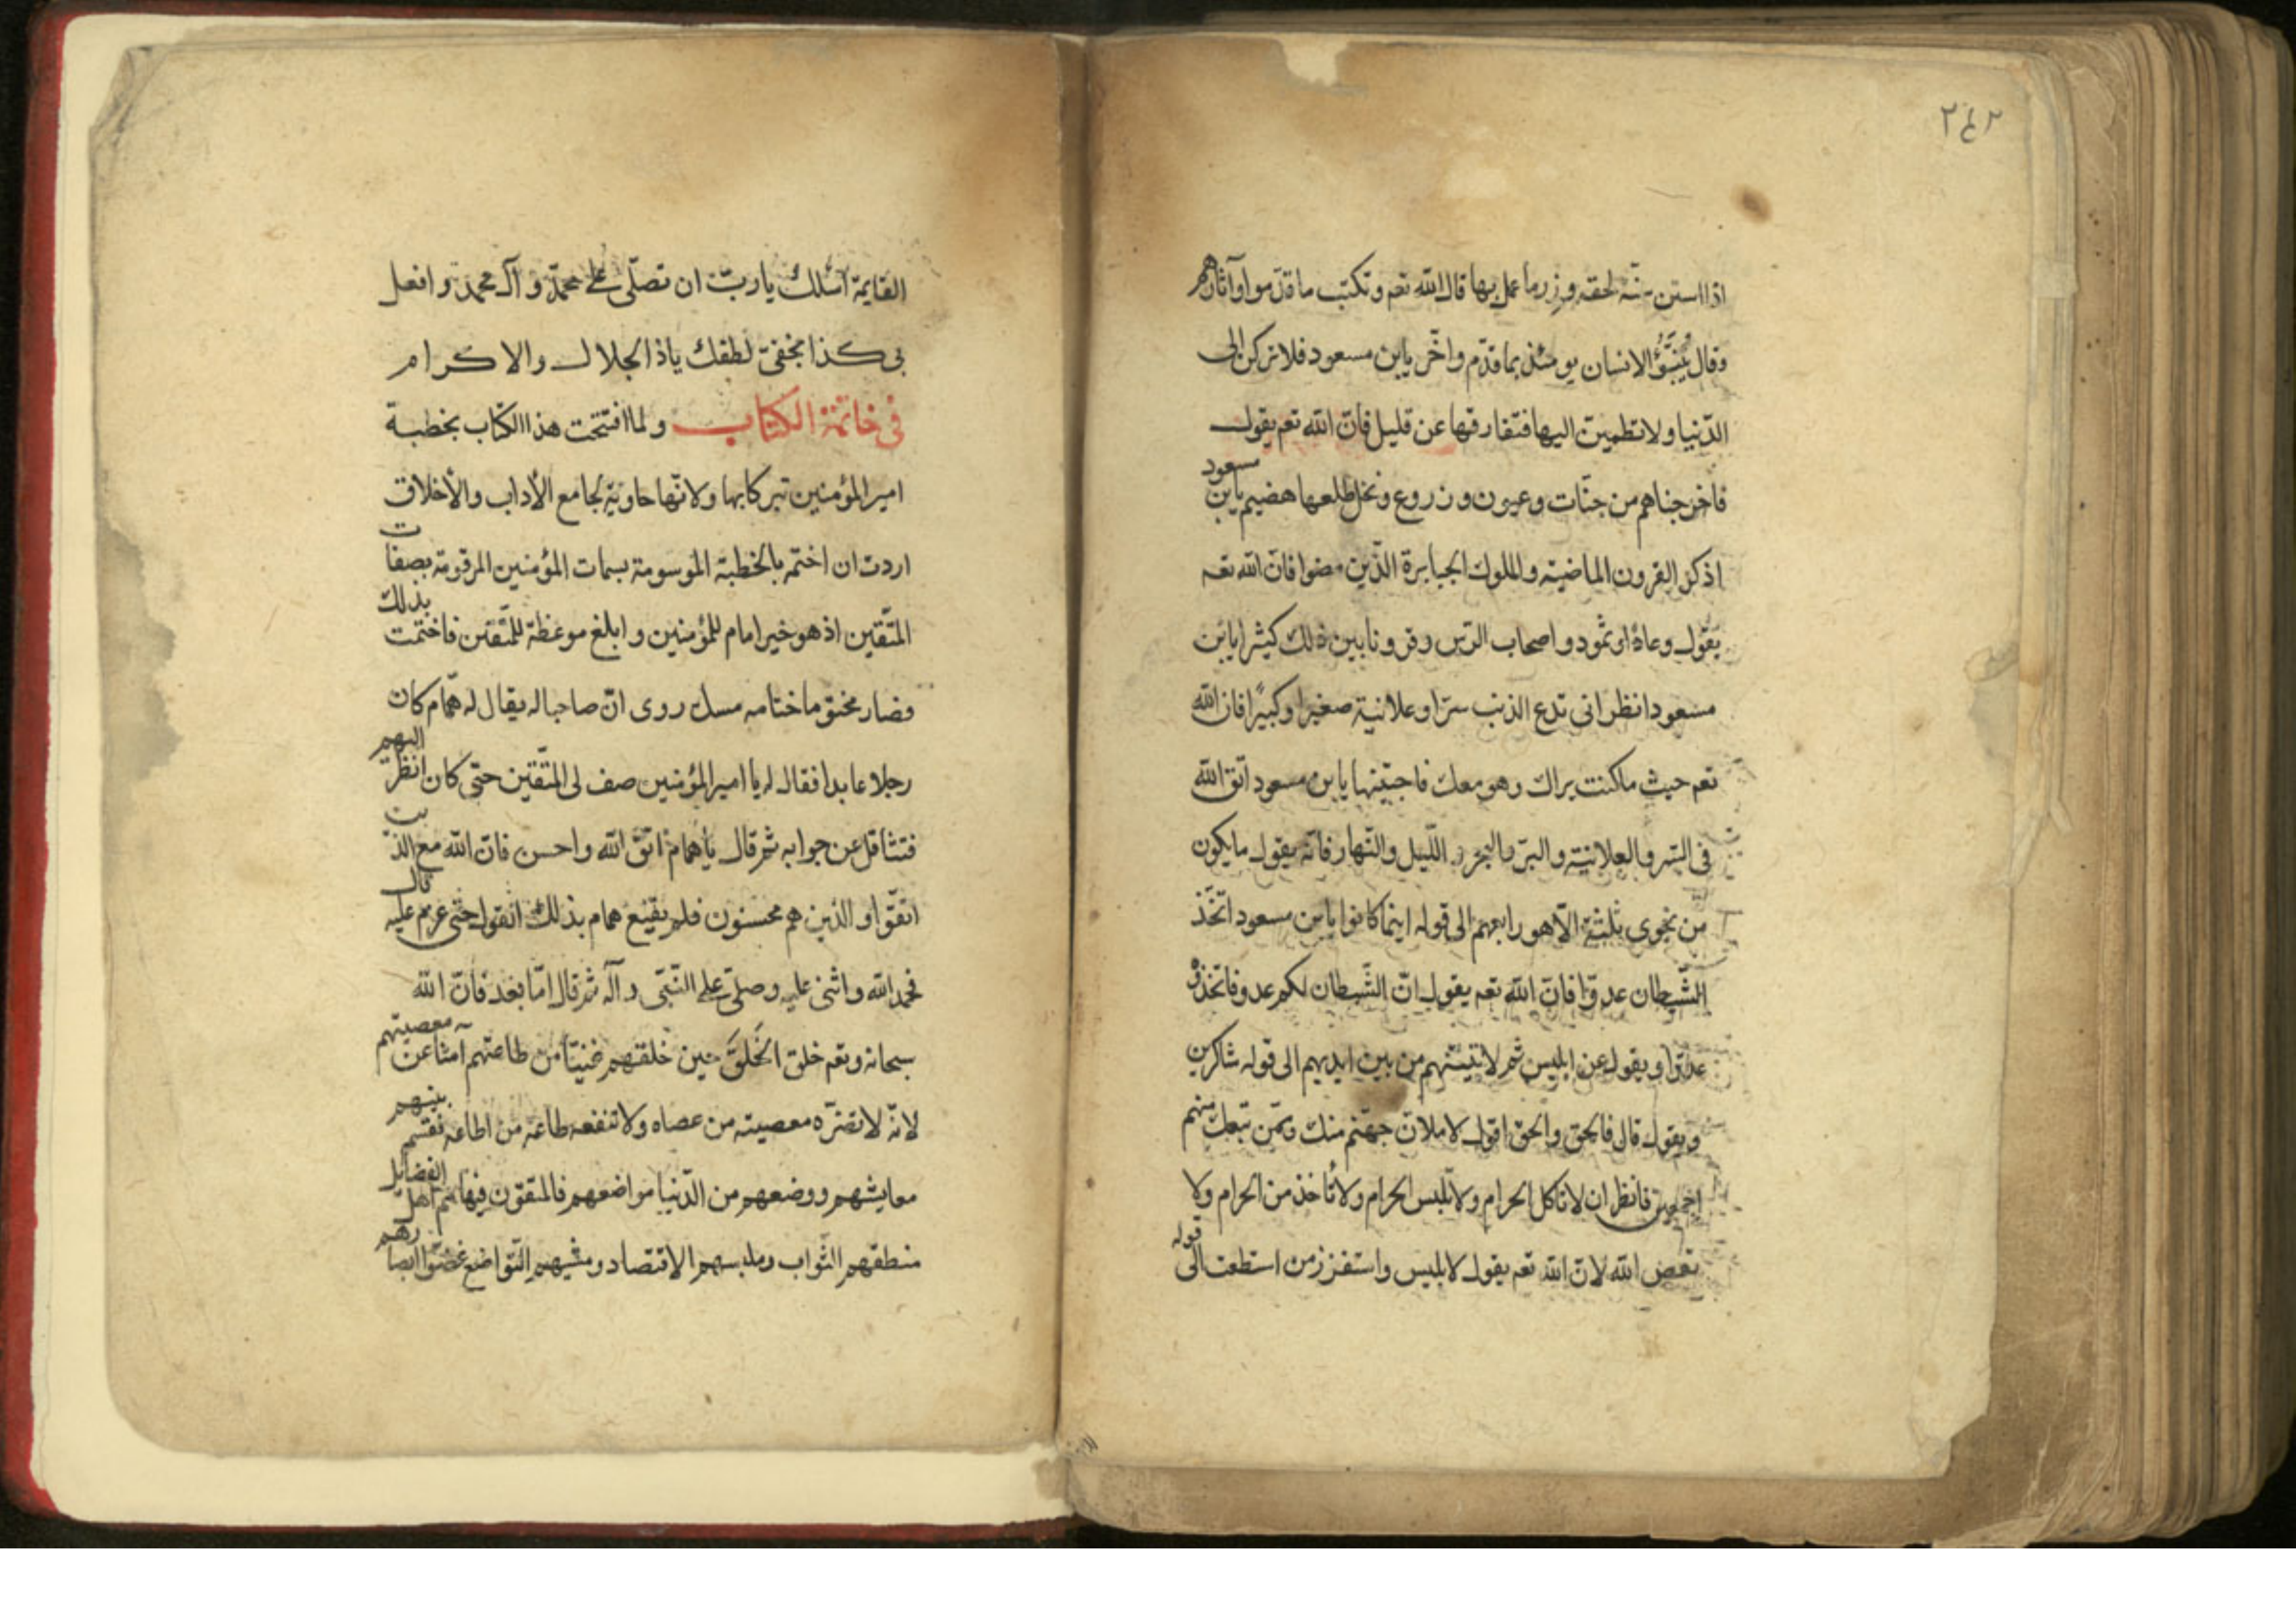 ٢٤٢
اذا استن سنّة لحقه وزر ما عمل بها قال الله تعم ونكتب ما قدّموا وآثارهم
وقال يُنَبَّؤُ الانسان يومئذ بما قدّم واخّر يابن مسعود فلا تركن الى
الدّنيا ولا تطمئنّ اليها فتفارقها عن قليل فانّ الله تعم يقول
فاخرجناهم من جنّات وعيون وزروع ونخل طلعها هضيم يابن مسعود
اذكر القرون الماضية والملوك الجبابرة الّذين مضوا فانّ الله تعم
يقول وعادًا وثمود واصحاب الرّس وقرونا بين ذلك كثيرا يابن
مسعود انظر ان تدع الذنب سرّا وعلانية صغيرا وكبيرًا فان الله
تعم حيث ما كنت يراك وهو معك فاجتنبها يابن مسعود اتق الله
فى السّر والعلانية والبرّ والبحر و اللّيل والنّهار فانّه يقول ما يكون
من نجوى ثلثة الّا هو رابعهم الى قوله اينما كانوا يابن مسعود اتّخذ
الشّيطان عدوّا فانّ الله تعم يقول انّ الشّيطان لكم عدو فاتّخذوه
عدوّا ويقول عن ابليس ثم لاتينّهم من بين ايديهم الى قوله شاكرين
ويقول قال فالحق والحق اقول لاملانّ جهنّم منك وممّن تبعك منهم
اجمعين فانظر ان لا تاكل الحرام ولا تلبس الحرام ولا تأخذ من الحرام ولا
تعص الله لانّ الله تعم يقول لابليس واستفزز من استطعت الى قوله
القايمة اسئلك ياربّ ان تصلّى على محمّد و آل محمّد و افعل
بى كذا بخفىّ لطفك ياذا الجلال والاكرام
فى خاتمة الكتاب ولما افتتحت هذا الكتاب بخطبة
امير المؤمنين تبركا بها ولانّها حاوية لجامع الأداب والأخلاق
اردت ان اختمه بالخطبة الموسومة بسمات المؤمنين المرقومة بصفات
المتّقين اذ هو خير امام للمؤمنين و ابلغ موعظة للمتّقين فاختتمت بذلك
فصار مختوما ختامه مسك روى انّ صاحبا له يقال له همّام كان
رجلا عابدا فقال له يا امير المؤمنين صف لى المتّقين حتّى كان انظر اليهم
فتثاقل عن جوابه ثم قال يا همام اتق الله واحسن فانّ الله مع الذين
اتقوا و الذين هم محسنون فلم يقنع همام بذلك القول حتّى عزم عليه قال
فحمد الله واثنى عليه وصلّى على النّبّى وآله ثم قال امّا بعد فانّ الله
سبحانه وتعم خلق الخلق حين خلقهم غنيّا من طاعتهم آمنا عن معصيتهم
لانّه لا تضرّه معصيته من عصاه ولا تنفعه طاعة من اطاعه فقسم بينهم
معايشهم ووضعهم من الدّنيا مواضعهم فالمتقون فيها هم اهل الفضايل
منطقهم الصّواب وملبسهم الاقتصاد ومشيهم التّواضع غضّوا ابصارهم